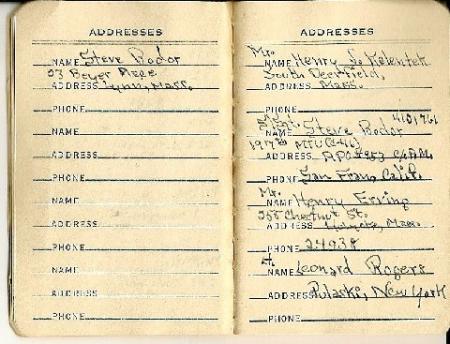 ADDRESSES
NAME Steve Bodor
23 Beyer
ADDRESS Lynn, Mass.
PHONE
NAME
ADDRESS
PHONE
NAME
ADDRESS
PHONE
NAME
ADDRESS
PHONE
ADDRESSES
Mr.
NAME Henry J. Kelentek
South Deerfield,
ADDRESS Mass.
PHONE
NAME Steve Bodor
ADDRESS APO
PHONE San Fran, Calif.
Mr.
NAME Henry Erving
255 Chestnut St.
ADDRESS Holyoke, Mass.
PHONE 24938
NAME Leonard Rogers
ADDRESS Pulaski, New York
PHONE